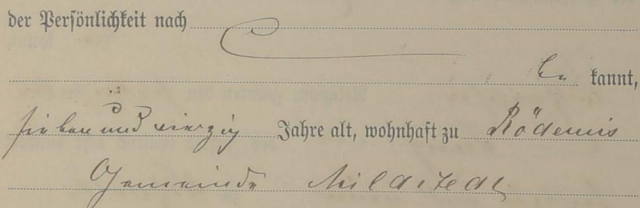 der Persönlichkeit nach
be kannt,
sieben und vierzig Jahre alt, wohnhaft zu Rödemis
Gemeinde Mildstedt